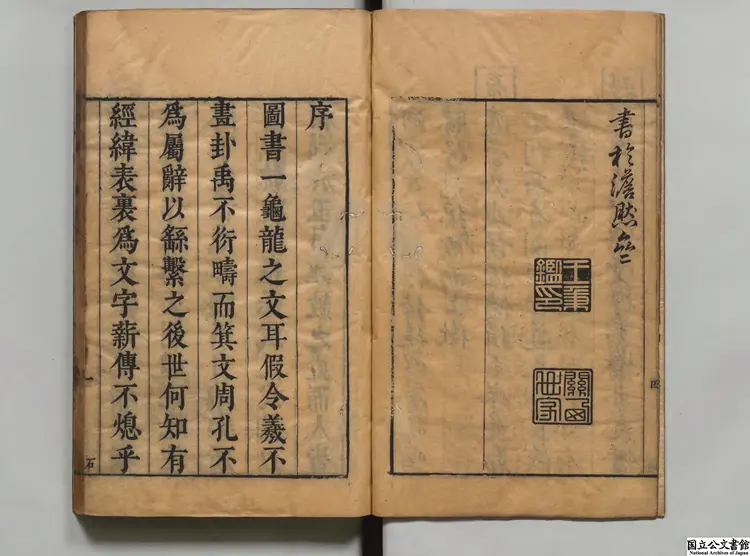 書於澹默
王秉
鑑印
關西
世家
四
序
圖書一龜龍之文耳假令羲不
畫卦禹不衍疇而箕文周孔不
爲屬辭以繇繫之後世何知有
經緯表裏爲文字薪傳不熄乎
一
石
国立公文書館
National Archives of Japan